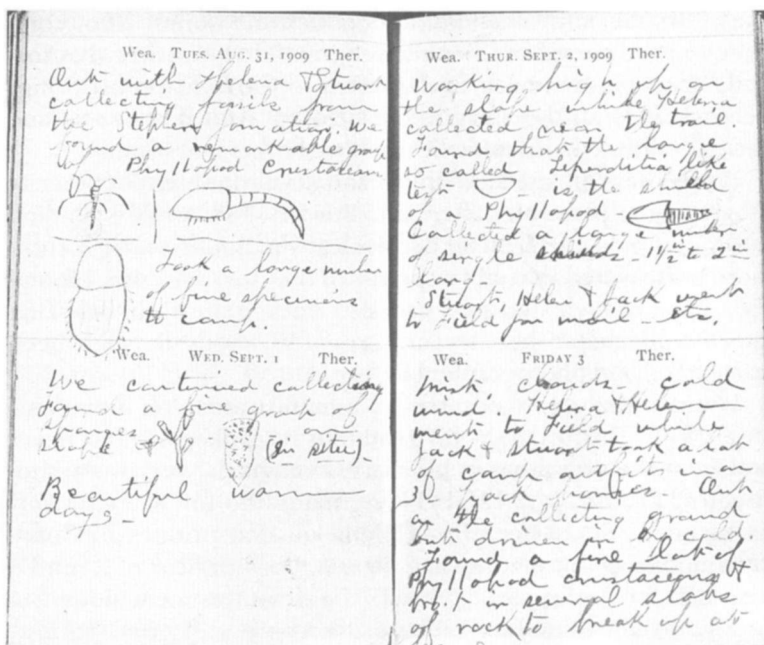 Wea. TUES. AUG. 31, 1909 Ther.
Out with Helena & Stuart
collecting fossils from
the Stephen formation. We
found a remarkable group
of Phyllopod Crustaceans
Took a large number
of fine specimens
to camp.
Wea. WED. SEPT. 1 Ther.
We continued collecting
Found a fine group of
sponges on
slope (in situ)
Beautiful warm
days -
Wea. THUR. SEPT. 2, 1909 Ther.
Working high up on
the slope while Helena
collected near the trail.
Found that the large
so called Leperditia like
test is the shield
of a Phyllopod -
Collected a large number
of single shields - 1 1/2 in to 2 in
long
Stuart, Helen & Jack went
to Field for mail etc.
Wea. FRIDAY 3 Ther.
clouds - cold
wind. Helena & Helen
went to Field while
Jack & Stuart took a lot
of camp outfit in on
3 pack ponies. Out
on the collecting ground
but driven in by cold
Found a fine lot of
Phyllopod crustaceans &
bro't in several slabs
of rock to break up at